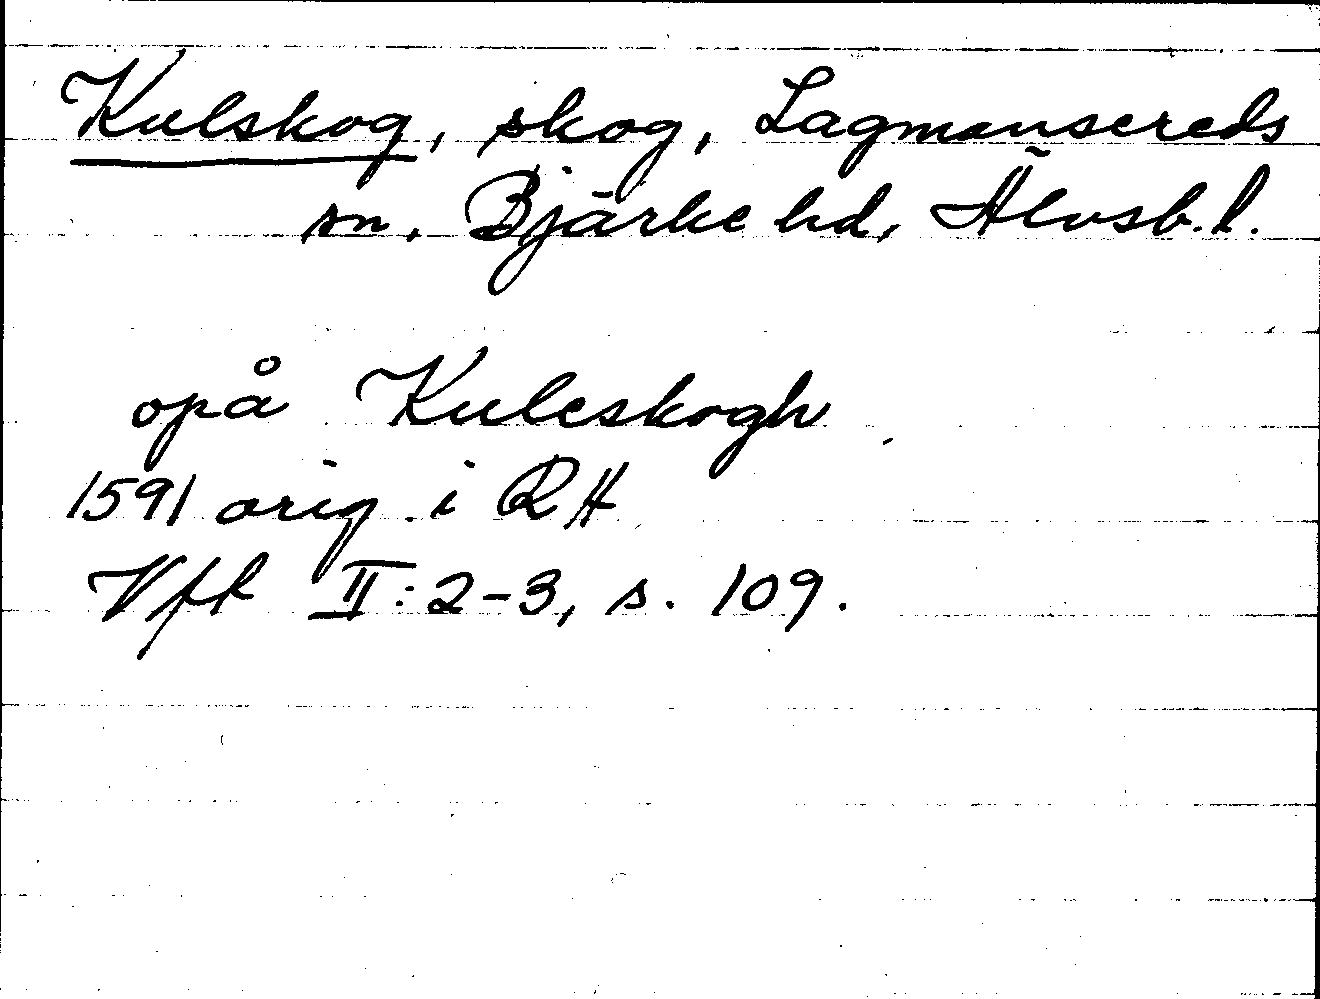 Kulskog, skog, Lagmansereds
sn, Bjärke hd, Älvsb. l.
opå Kuleskogh
1591 orig. i RA
Vfk II:2-3, s. 109.